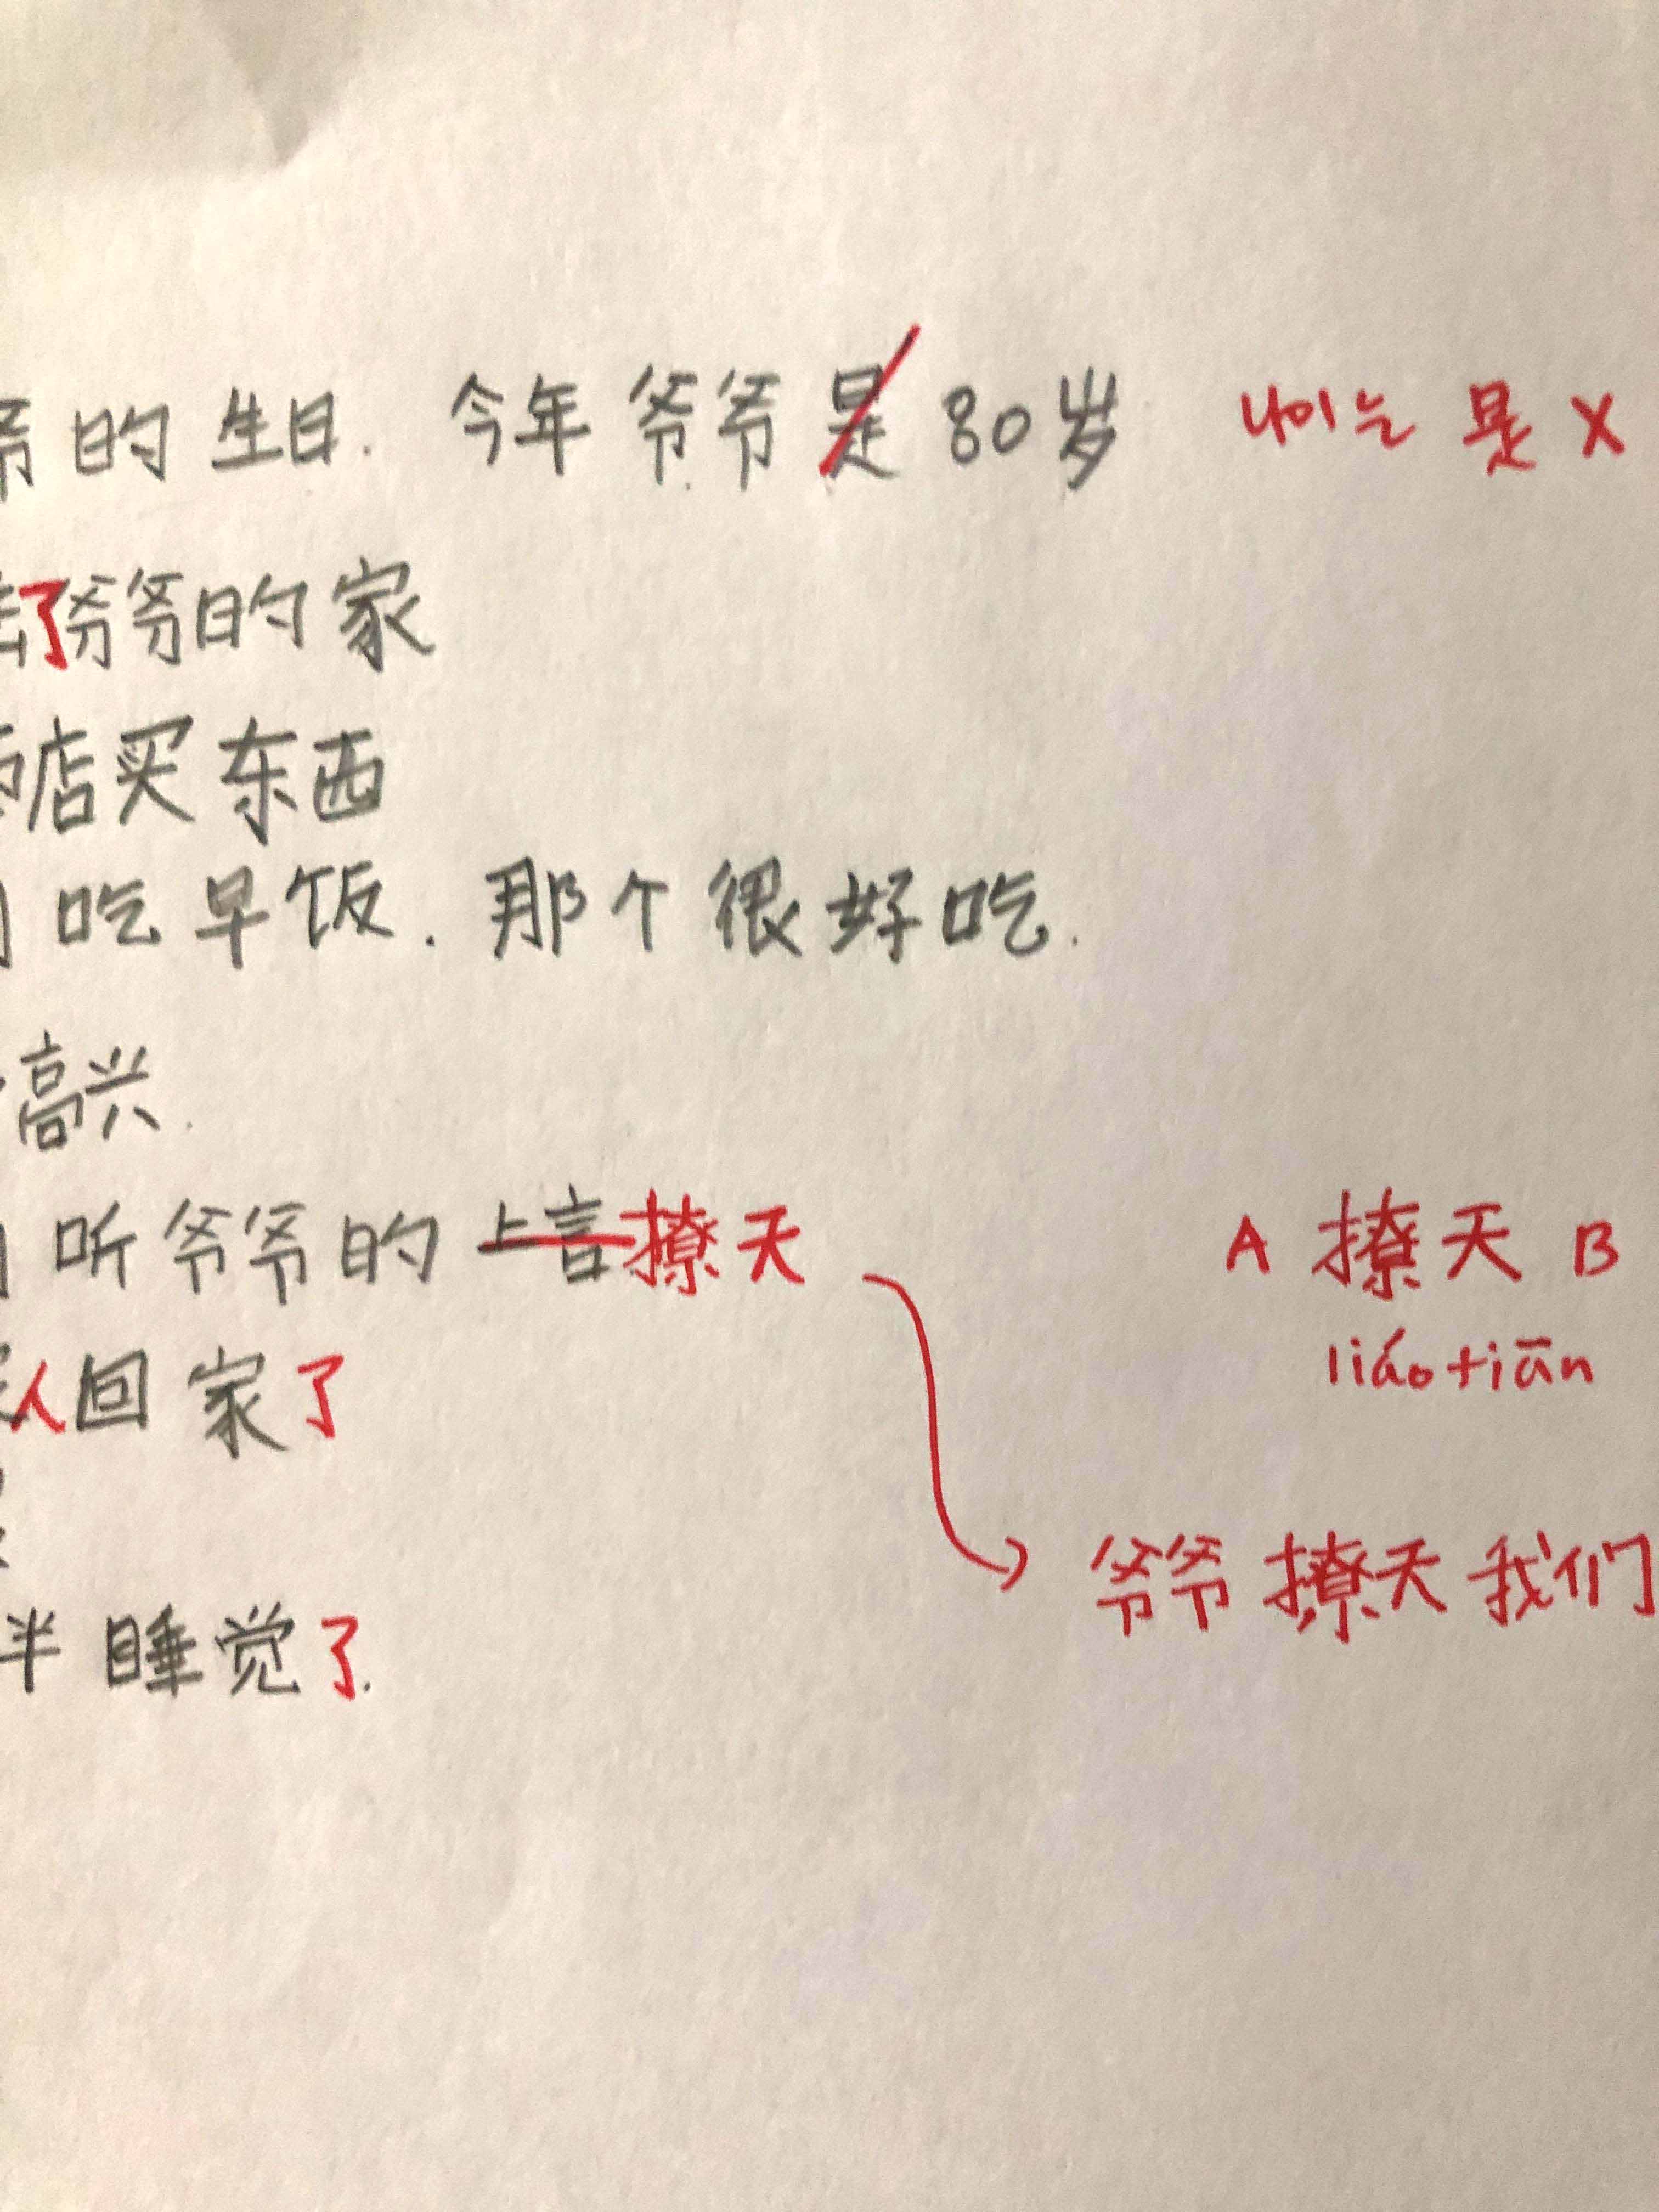 爷的生日. 今年爷爷是80岁 나이는 是 X
去了爷爷的家
店买东西
吃早饭. 那个很好吃.
高兴.
听爷爷的 撩天 A 撩天 B
liáotiān
人回家了
爷爷撩天我们
半睡觉了.